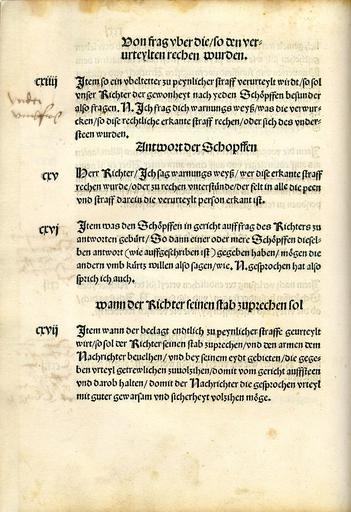 Von frag vber die/so den ver-
urteylten rechen wurden.
cxiiij
Item so ein vbeltetter zu peynlicher straff verurteylt wirdt/so sol
vnser Richter der gewonheyt nach yeden Schöpffen besunder
also fragen. N. Ich frag dich warnungs weyß/was die verwür-
cken/so dise rechtliche erkante straff rechen/oder sich des vnder-
steen wurden.
Antwort der Schöpffen
cxv
Herr Richter/Ich sag warnungs weyß/wer dise erkante straff
rechen wurde/oder zu rechen vnterstünde/der felt in alle die peen
vnd straff darein die verurteylt person erkant ist.
cxvj
Item was den Schöpffen in gericht auff frag des Richters zu
antworten gebürt/So dann einer oder mere Schöpffen diesel-
ben antwort (wie auffgeschriben ist) gegeben haben/mögen die
andern vmb kürtz willen also sagen/wie. N. gesprochen hat also
sprich ich auch.
wann der Richter seinen stab zuprechen sol
cxvij
Item wann der beclagt endtlich zu peynlicher straffe geurteylt
wirt/so sol der Richter seinen stab zuprechen/vnd den armen dem
Nachrichter beuelhen/vnd bey seinem eydt gebieten/die gege-
ben vrteyl getrewlichen zuuolzihen/domit vom gericht auffsteen
vnd darob halten/domit der Nachrichter die gesprochen vrteyl
mit guter gewarsam vnd sicherheyt volzihen möge.